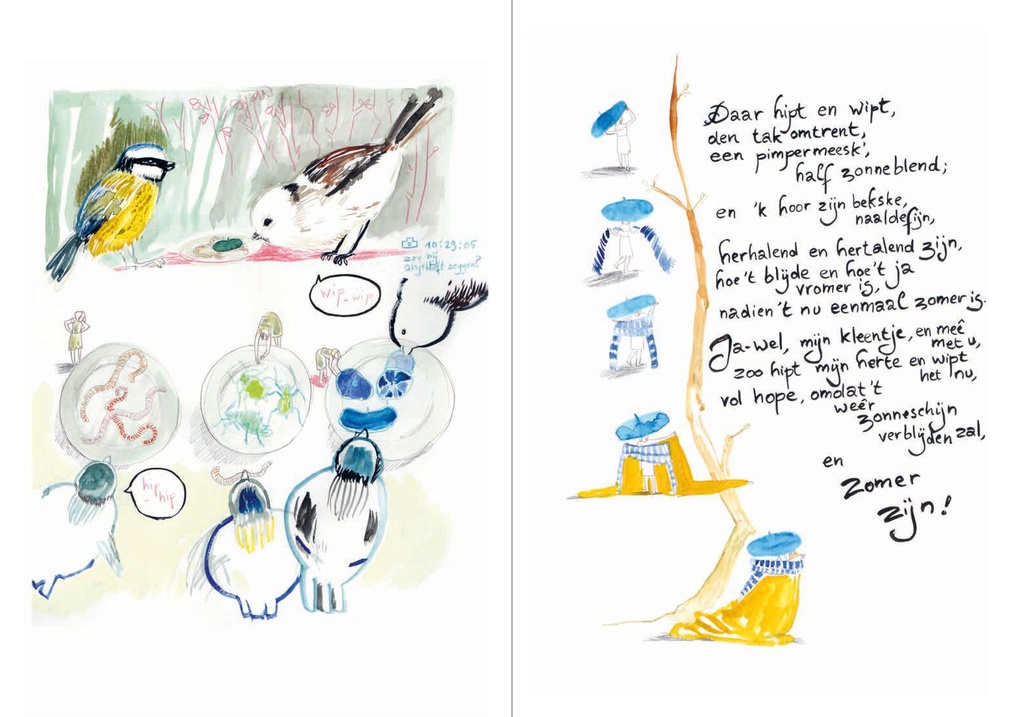 10:29:05
zou hij
alstublieft zeggen?
wip-wip
hip
-hip
Daar hipt en wipt,
den tak omtrent,
een pimpermeesk',
half zonneblend;
en 'k hoor zijn bekske,
naaldefijn,
herhalend en hertalend zijn,
hoe't blijde en hoe't ja
vromer is,
nadien 't nu eenmaal zomer is.
Ja-wel, mijn kleentje, en meê
met u,
zoo hipt mijn herte en wipt
het nu,
vol hope, omdat 't
weêr
zonneschijn
verblijden zal,
en
zomer
zijn!